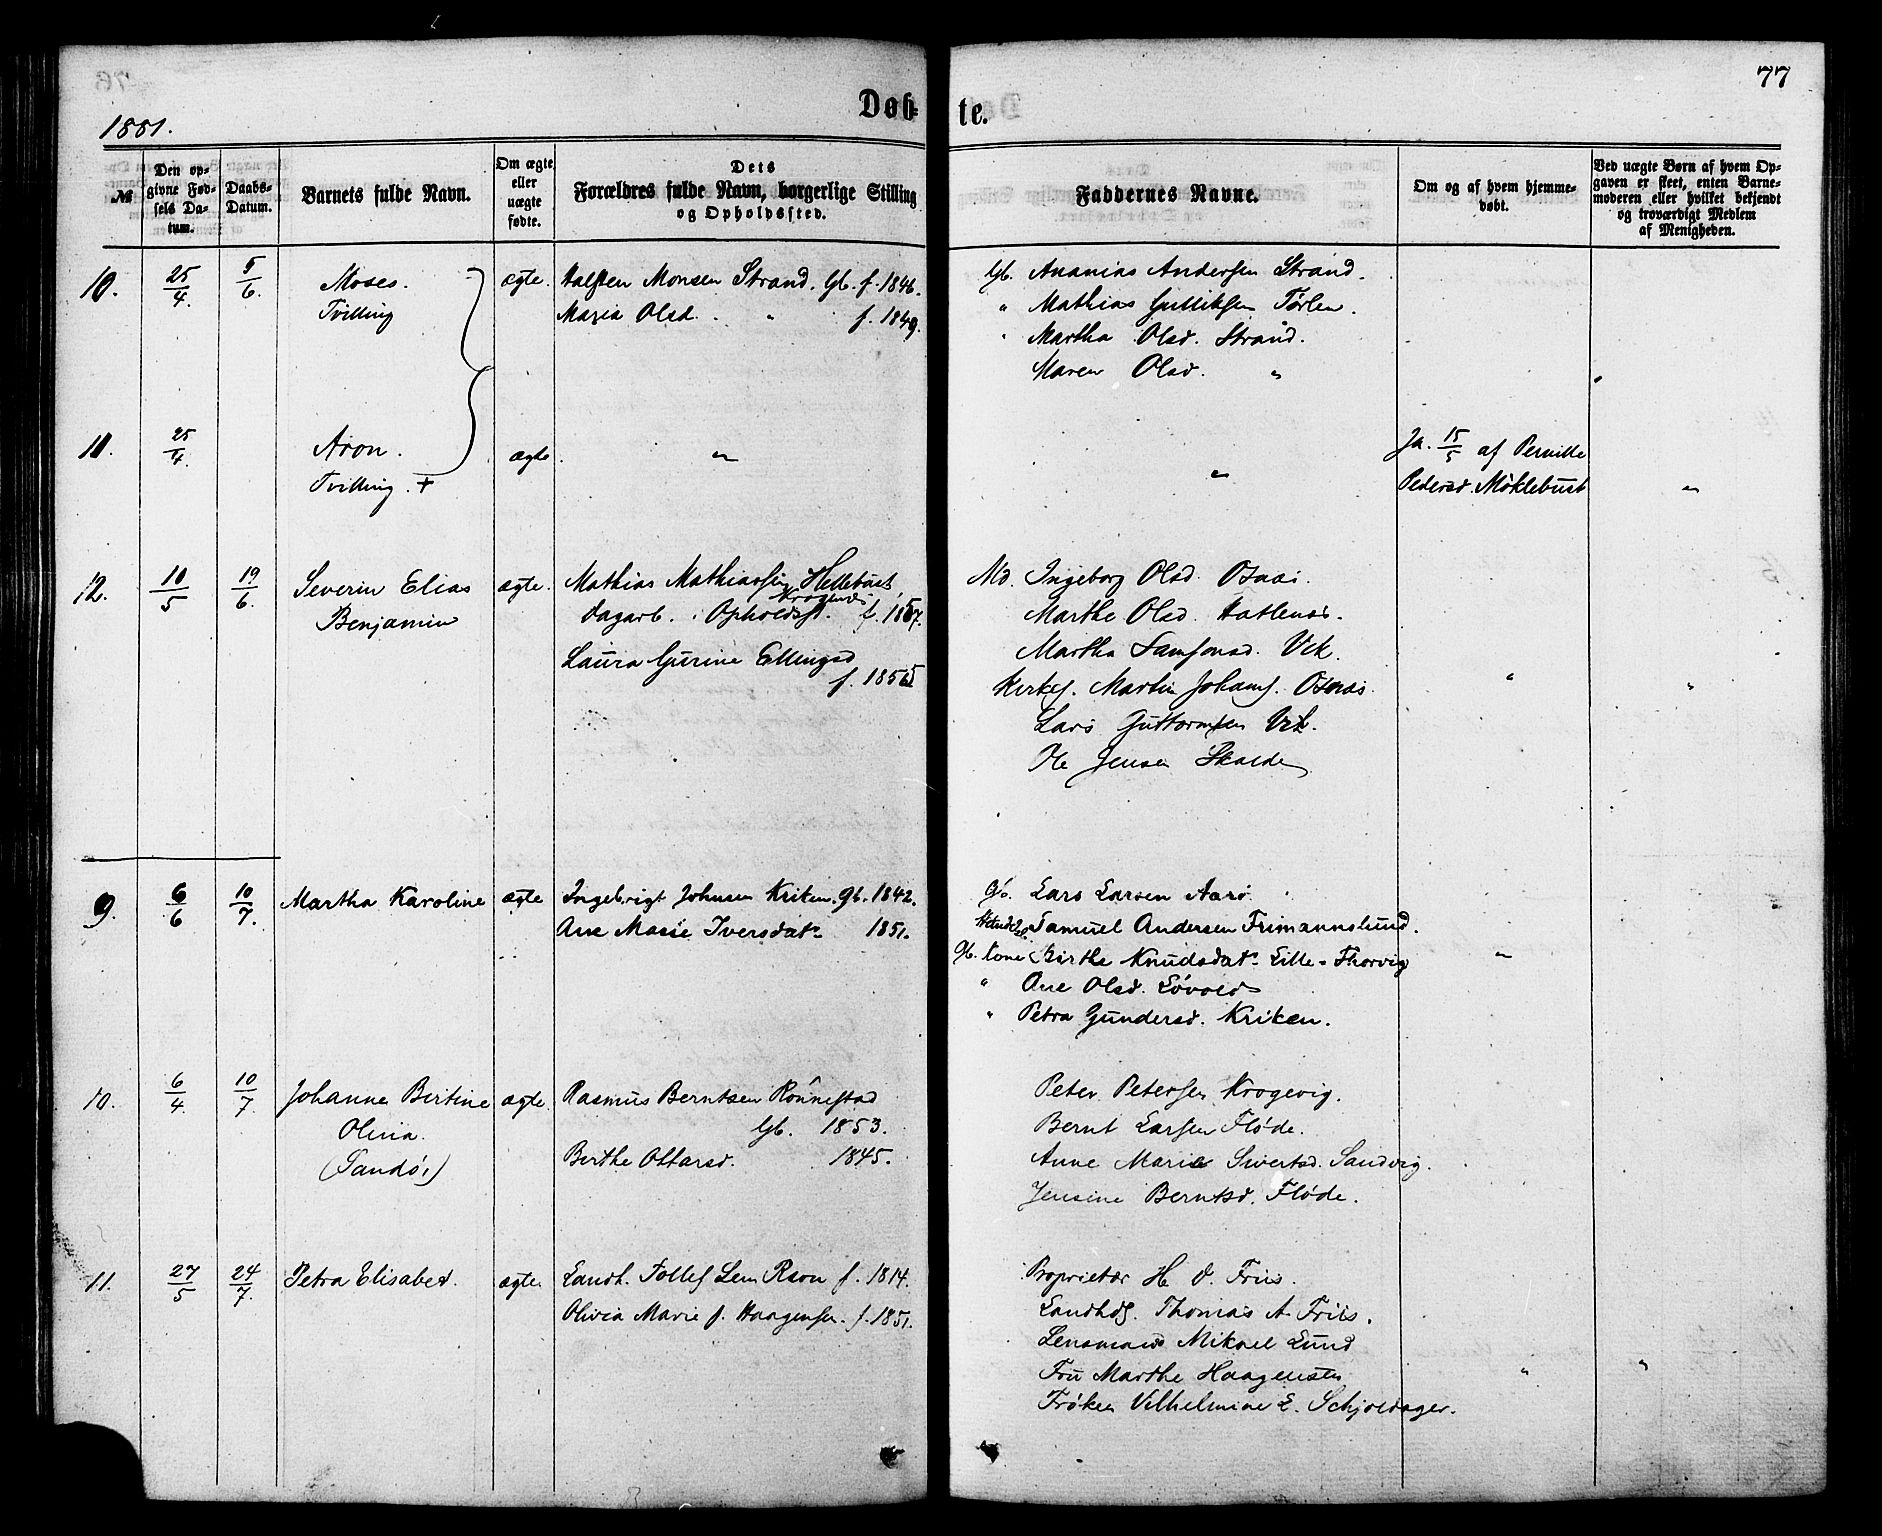 77
1881.
Døb-
te.
№
Den op-
givne Fød-
sels Da-
tum.
Daabs-
Datum.
Barnets fulde Navn.
Om ægte
eller
uægte
fødte.
Dets
Forældres fulde Navn, borgerlige Stilling
og Opholdssted.
Faddernes Navne.
Om og af hvem hjemme-
døbt.
Ved uægte Børn af hvem Op-
gaven er skeet, enten Barne-
moderen eller hvilket bekjendt
og troværdigt Medlem
af Menigheden.
10. 25/4 5/6. Moses. ægte. Halsten Monsen Strand. Gb. f. 1846.
Tvilling Maria Olsd. " f. 1849.
Gb. Ananias Andersen Strand.
" Mathias Gulliksen
" Martha Olsd. Strand.
Maren Olsd. "
11. 25/4. Aron. ægte "
Tvilling. +
"
Ja. 15/5 af Pernille
Pedersd. Møklebust "
12. 10/5 19/6. Severin Elias ægte. Mathias Mathiassen Hellebust,
Benjamin dagarb. i Opholdsst. f. 1857.
Laura Gurine Ellingsd
f. 1855
Md. Ingeborg Olsd. Osnæs.
Marthe Olsd. Hatlenæs.
Martha Samsonsd. Vik.
Kirkes. Martin Johans. Osnæs. " "
Lars Guttormsen Vik.
Ole Jensen
9. 6/6 10/7. Martha Karoline ægte Ingebrigt Johnsen Kriken. Gb. 1842.
Ane Marie Iversdatr 1851.
Gb. Lars Larsen Aarø.
Handelsb. Samuel Andersen Frimannslund.
Gb. kone Birthe Knudsdatr Lille-Thorvig "
" Ane Olsd. Løvold
" Petra Gundersd. Kriken.
10. 6/4 10/7. Johanne Bertine ægte. Rasmus Berntsen Rønnestad
Olivia. Gb. 1853.
(Sandø,) Berthe Ottarsd. 1845.
Peter Petersen Krogevig.
Bernt Larsen Fløde.
Anne Marie Sivertsd. Sandvig.
Jensine Berntsd. Fløde.
11. 27/5 24/7. Petra Elisabet. ægte. Landh. Tollef Lem f. 1814.
Olivia Marie f. Haagensen. f. 1851.
Proprietær H. D. Friis.
Landhdl. Thomas A. Friis.
Lensmand Mikael Lund
Fru Marthe Haagensen " "
Frøken Vilhelmine E. Schjoldager.